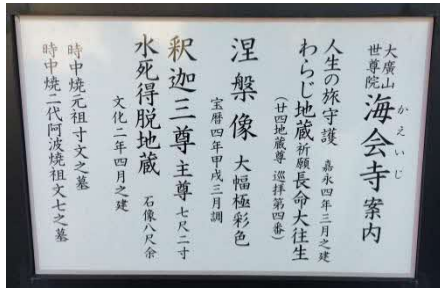 大廣山
世尊院
海会寺案内
かえいじ
人生の旅守護 嘉永四年三月之建
わらじ地蔵祈願長命大往生
(廿四地蔵尊 巡拝第四番)
涅槃像 大幅極彩色
宝暦四年甲戌三月調
釈迦三尊 主尊七尺二寸
水死得脱地蔵 石像八尺余
文化二年四月之建
時中焼元祖寸文之墓
時中焼二代阿波焼祖文七之墓